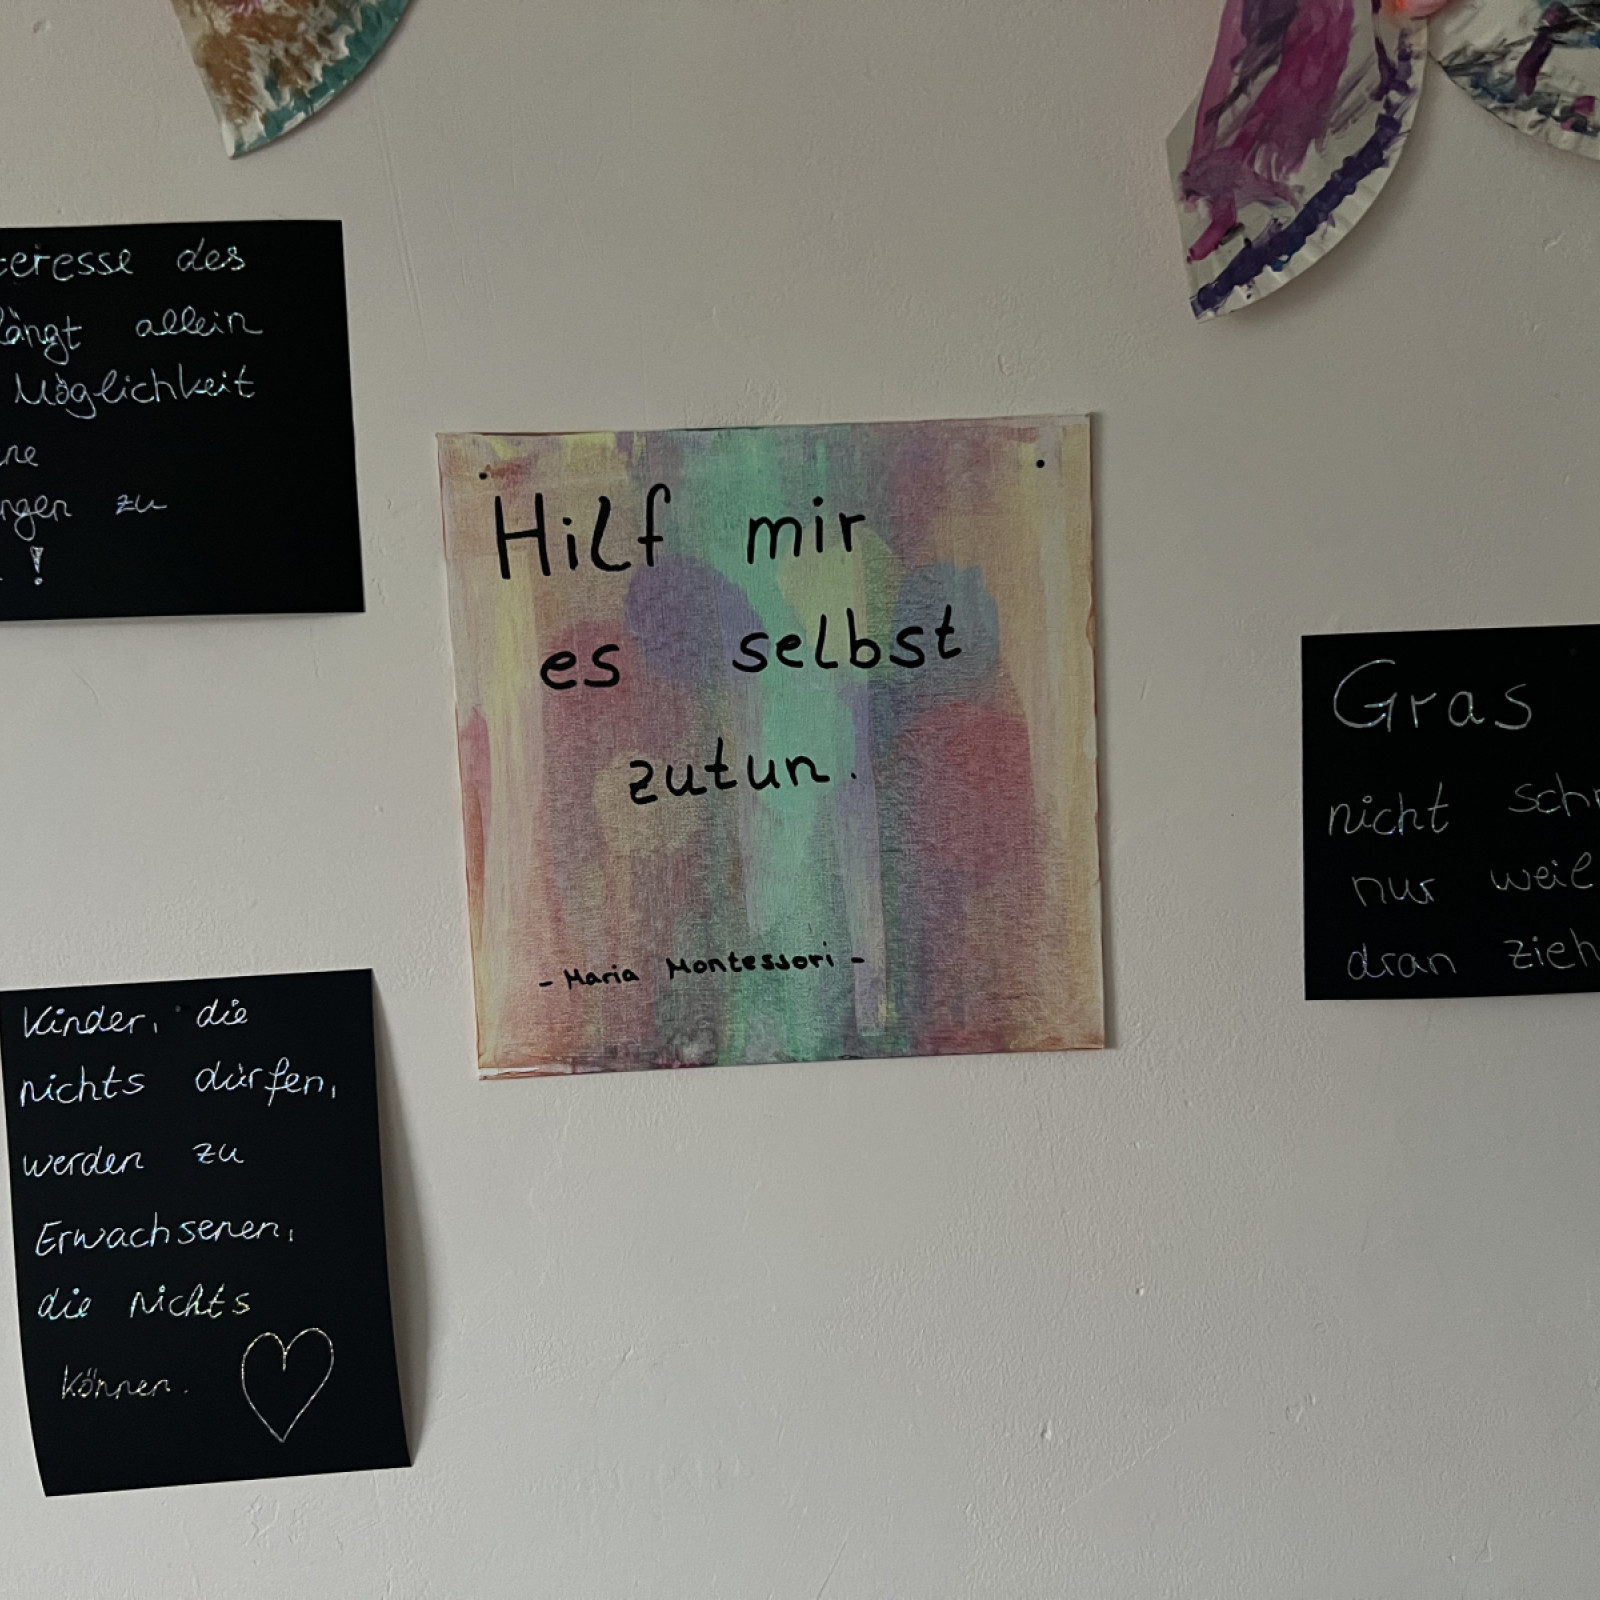 des
allein
Möglichkeit
zu
!
Hilf mir
es selbst
zutun.
- Maria Montessori -
Gras
nicht
nur weil
dran
Kinder, die
nichts dürfen,
werden zu
Erwachsenen,
die nichts
können.